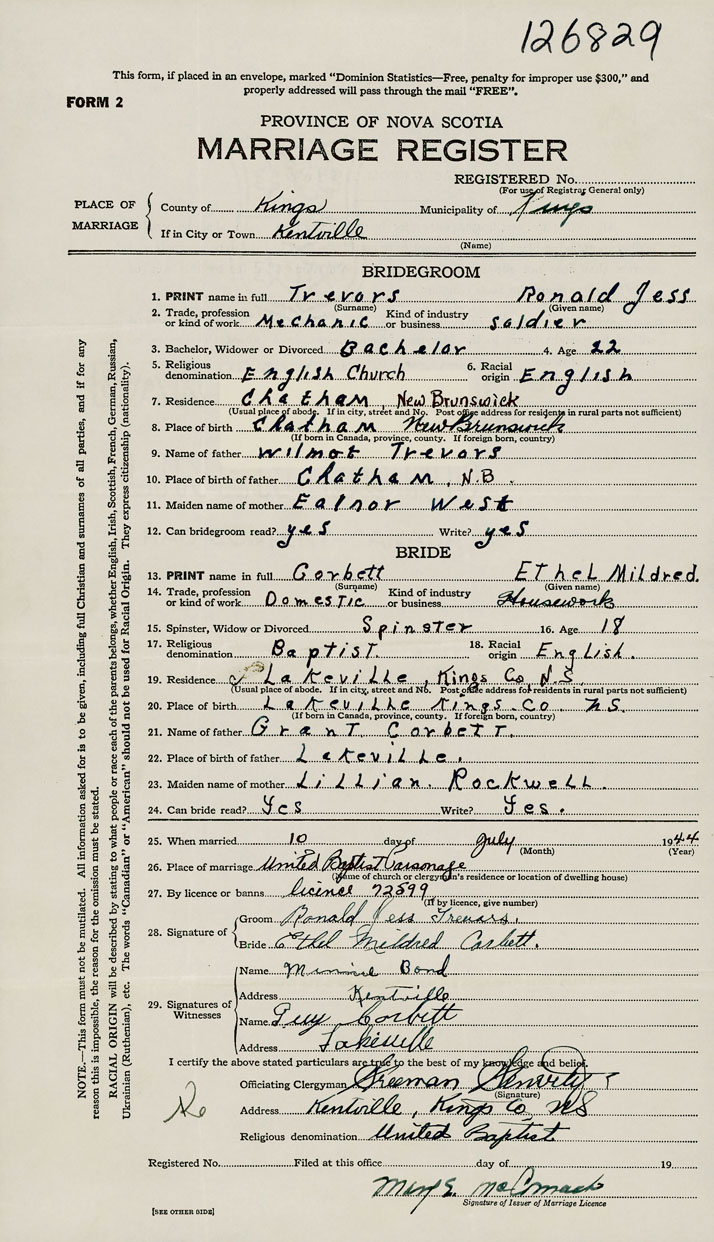 126829
This form, if placed in an envelope, marked "Dominion Statistics—Free, penalty for improper use $300," and
properly addressed will pass through the mail "FREE".
FORM 2
PROVINCE OF NOVA SCOTIA
MARRIAGE REGISTER
REGISTERED No.
(For use of Registrar General only)
PLACE OF MARRIAGE
County of Kings Municipality of Kings
If in City or Town Kentville
(Name)
BRIDEGROOM
1. PRINT name in full Trevors Ronald Jess
(Surname) (Given name)
2. Trade, profession or kind of work Mechanic Kind of industry or business soldier
3. Bachelor, Widower or Divorced Bachelor 4. Age 22
5. Religious denomination English Church 6. Racial origin English
7. Residence Chatham, New Brunswick
(Usual place of abode. If in city, street and No. Post office address for residents in rural parts not sufficient)
8. Place of birth Chatham New Brunswick
(If born in Canada, province, county. If foreign born, country)
9. Name of father Wilmot Trevors
10. Place of birth of father Chatham, N.B.
11. Maiden name of mother Ealnor West
12. Can bridegroom read? yes Write? yes
BRIDE
13. PRINT name in full Corbett Ethel Mildred.
(Surname) (Given name)
14. Trade, profession or kind of work Domestic Kind of industry or business Housework
15. Spinster, Widow or Divorced Spinster 16. Age 18
17. Religious denomination Baptist. 18. Racial origin English.
19. Residence Lakeville, Kings Co, N.S.
(Usual place of abode. If in city, street and No. Post office address for residents in rural parts not sufficient)
20. Place of birth Lakeville Kings. Co. N.S.
(If born in Canada, province, county. If foreign born, country)
21. Name of father Grant Corbett.
22. Place of birth of father Lakeville.
23. Maiden name of mother Lillian. Rockwell.
24. Can bride read? Yes Write? Yes.
25. When married 10 day of July 1944
(Month) (Year)
26. Place of marriage United Baptist Parsonage
(Name of church or clergyman's residence or location of dwelling house)
27. By licence or banns licence 72599
(If by licence, give number)
28. Signature of
Groom Ronald Jess Trevors.
Bride Ethel Mildred Corbett.
29. Signatures of Witnesses
Name Minnie Bond
Address Kentville
Name Guy Corbett
Address Lakeville
I certify the above stated particulars are true to the best of my knowledge and belief.
Officiating Clergyman Freeman
(Signature)
Address Kentville, Kings Co NS
Religious denomination United Baptist
Registered No. Filed at this office day of 19
Mary E. McCormack
Signature of Issuer of Marriage Licence
[SEE OTHER SIDE]
NOTE.—This form must not be mutilated. All information asked for is to be given, including full Christian and surnames of all parties, and if for any
reason this is impossible, the reason for the omission must be stated.
RACIAL ORIGIN will be described by stating to what people or race each of the parents belongs, whether English, Irish, Scottish, French, German, Russian,
Ukrainian (Ruthenian), etc. The words "Canadian" or "American" should not be used for Racial Origin. They express citizenship (nationality).